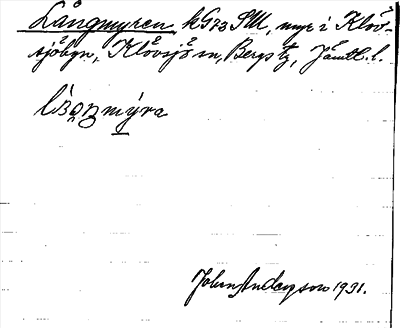 Långmyren, kG73 SM, myr i Klöv-
sjöbyn, Klövsjö sn, Bergs tg, Jämtl. l.
John Anderson 1931.